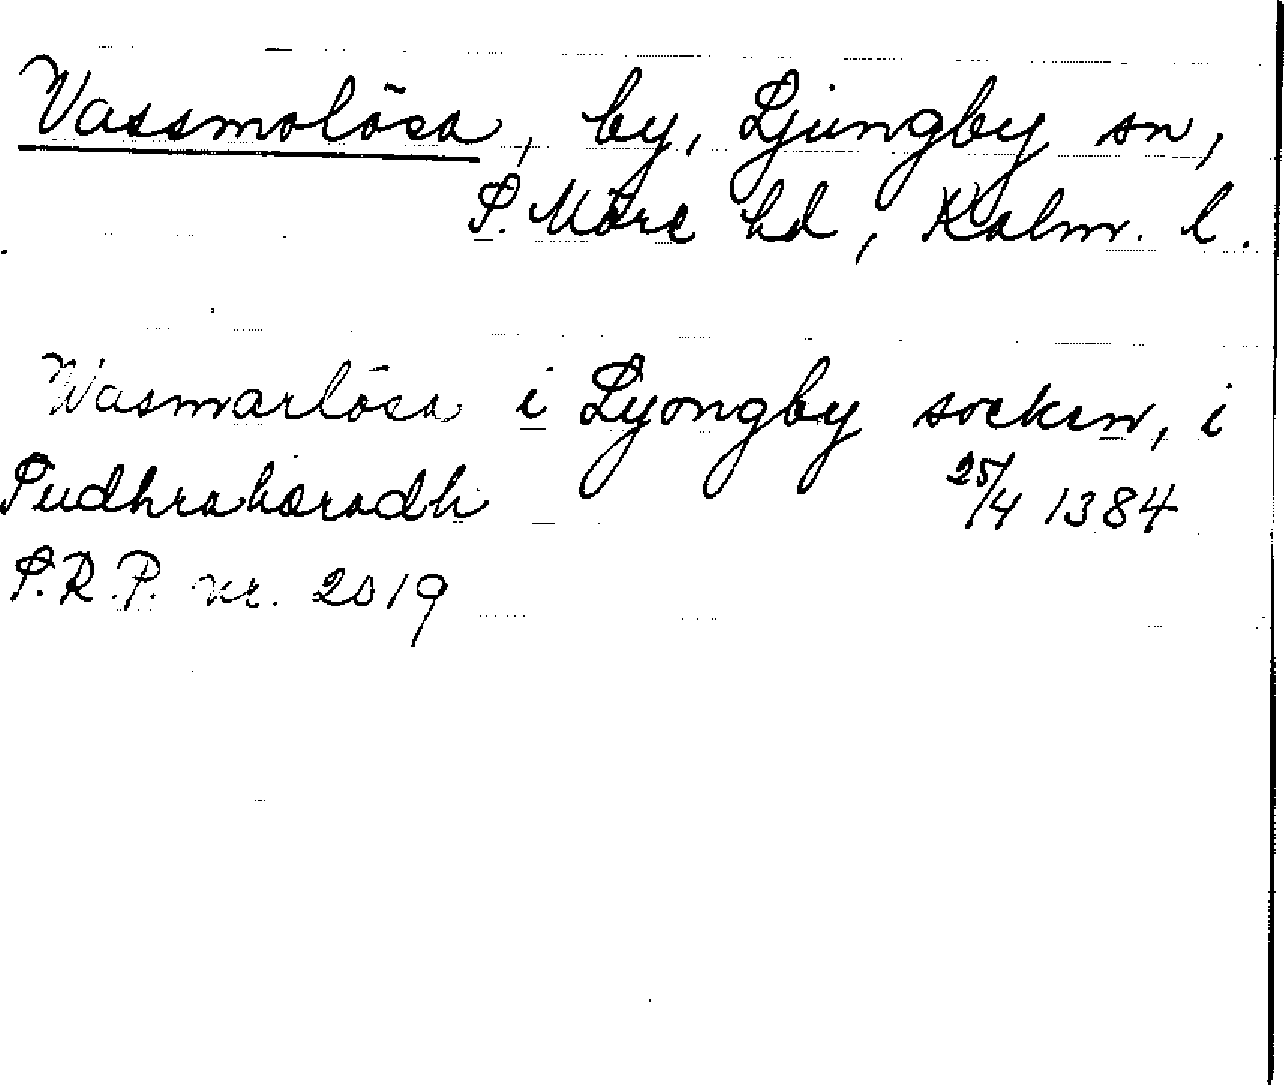 Vassmolösa, by, Ljungby sn,
S. Möre hd, Kalm. l.
Wasmarlösa i Lyongby socken, i
Sudhrahæradh 25/4 1384
S.R.P. nr. 2019